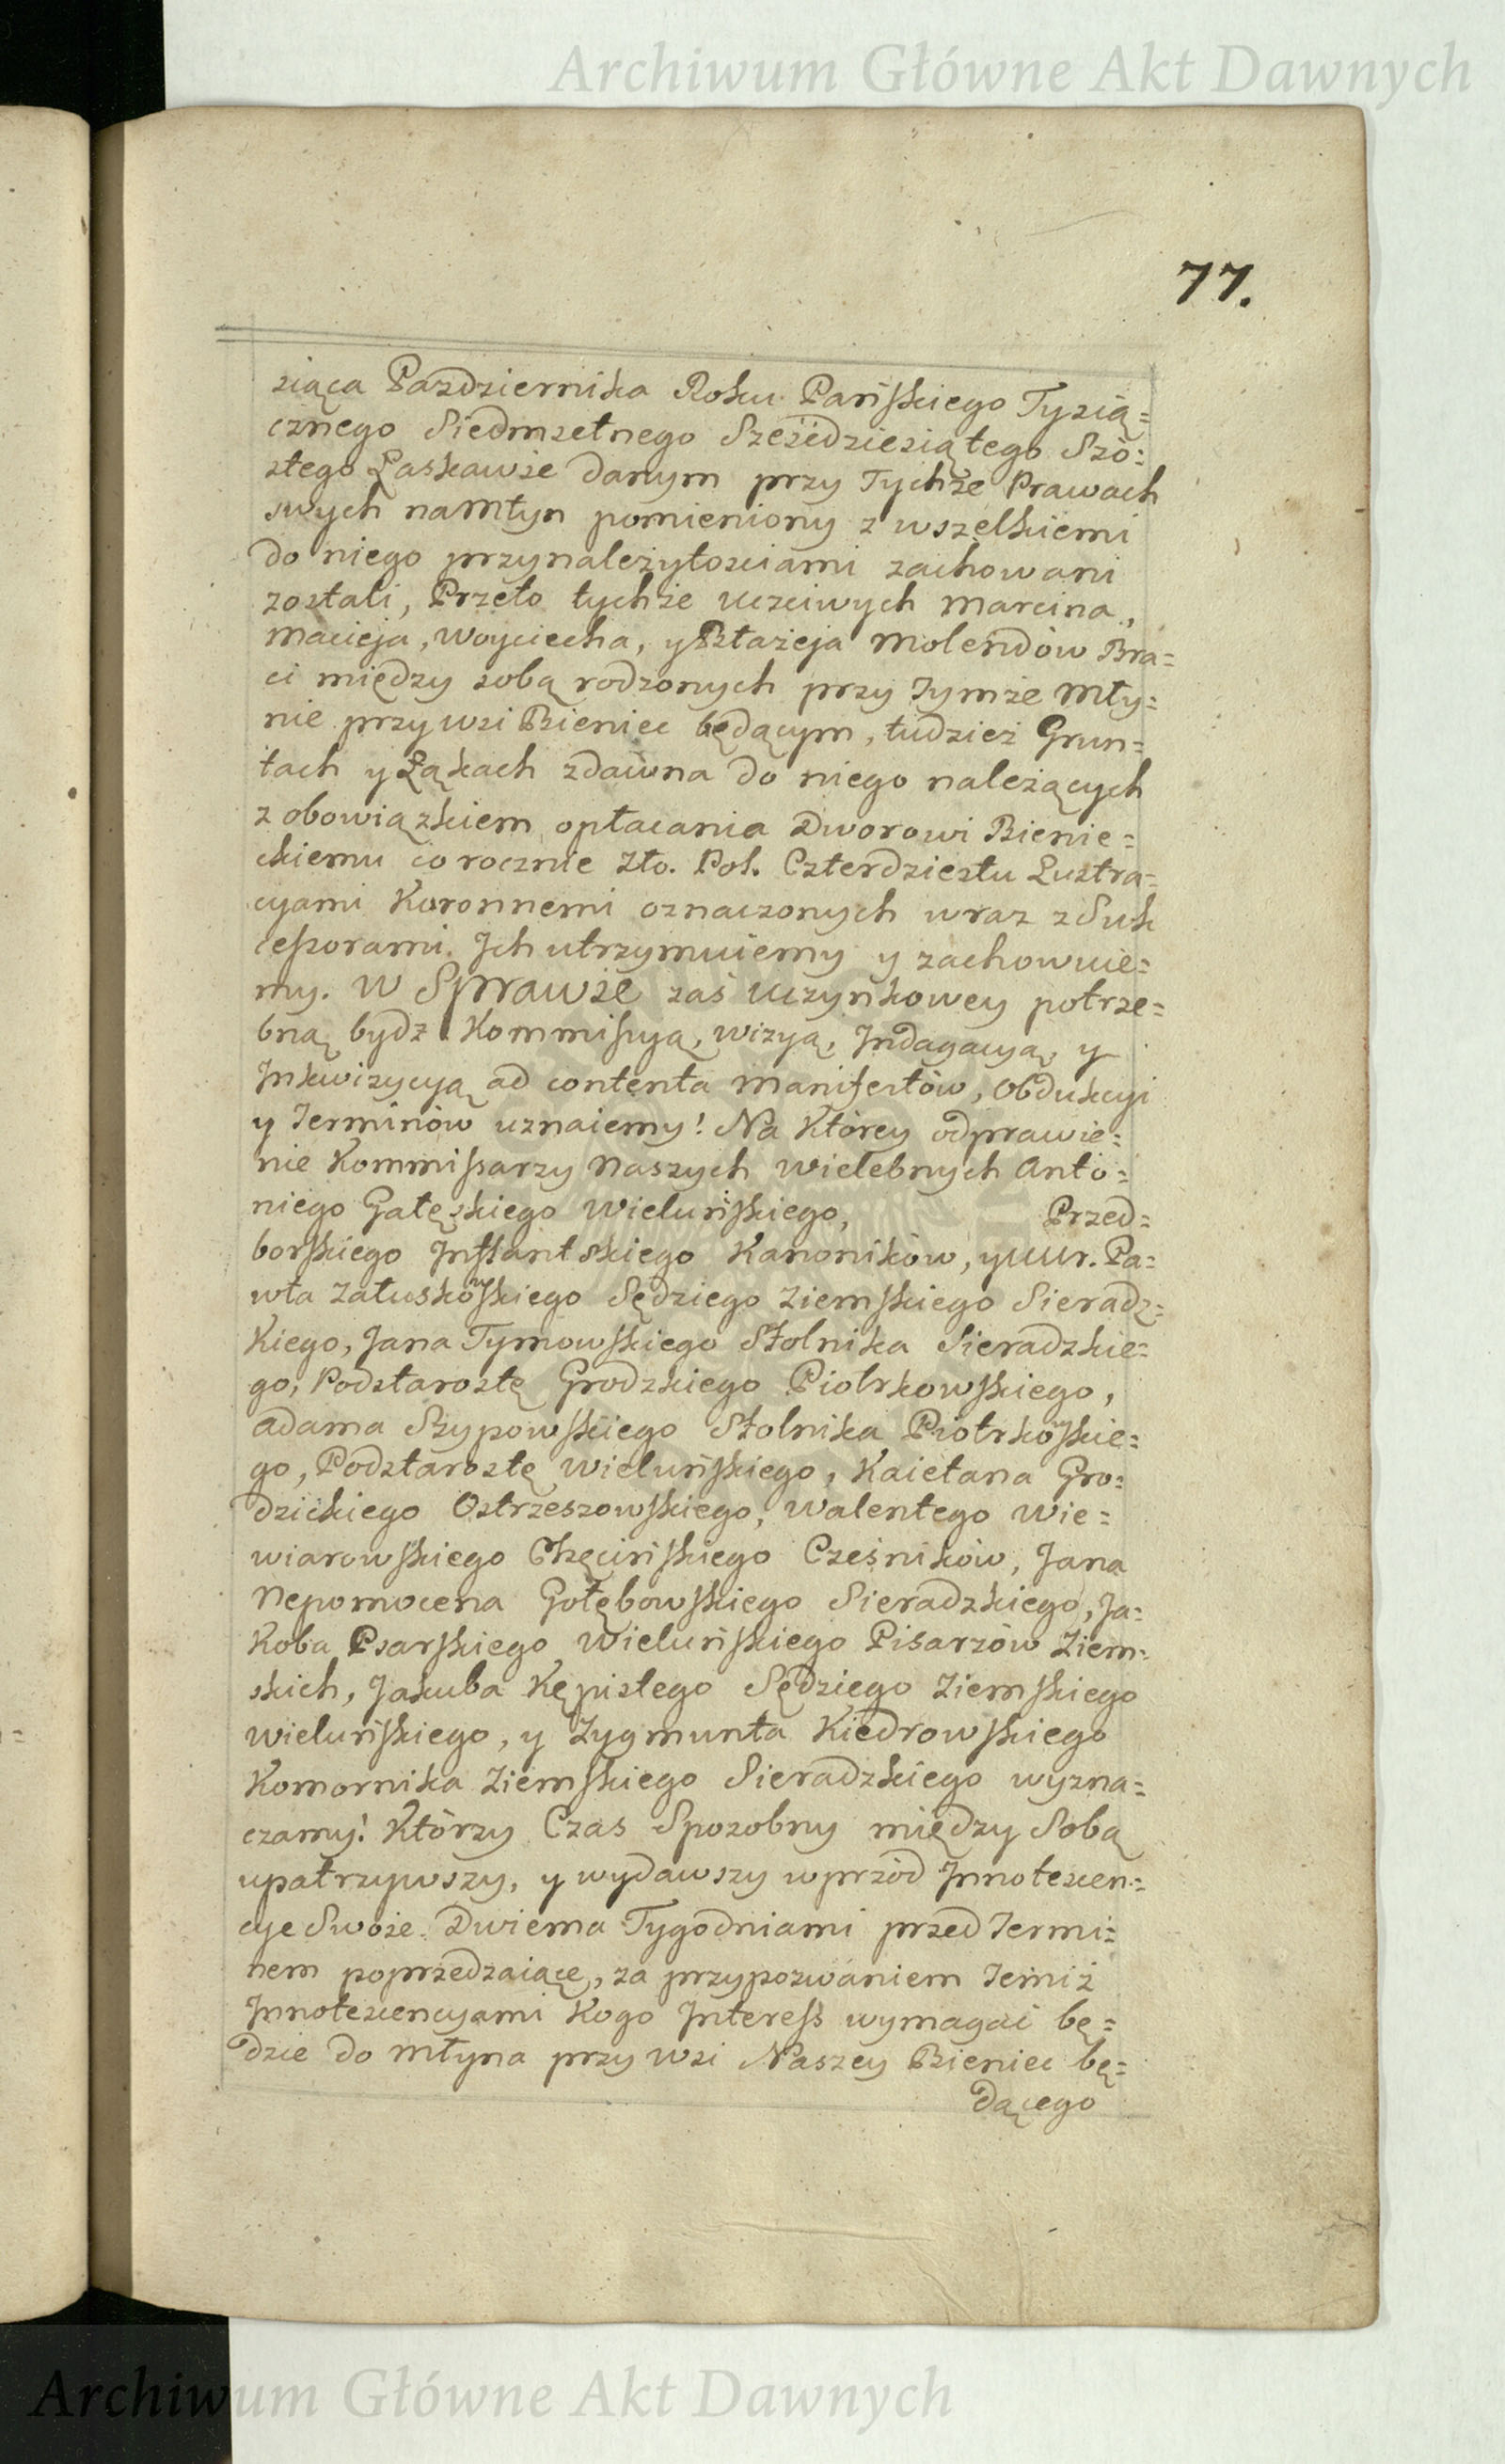 Archiwum Główne Akt Dawnych
77.
siąca Pazdziernika Roku Pańskiego Tysią=
cznego Siedmsetnego Sześćdziesiątego Szó=
stego Łaskawie danym przy Tychże Prawach
swych na Młyn pomieniony z wszelkiemi
do niego przynależytościami zachowani
zostali, Przeto tychże Uczciwych Marcina,
Macieja, Woyciecha, y Błażeja Molendów Bra=
ci między sobą rodzonych przy Tymże Mły=
nie przy wsi Bieniec będącym, tudzież Grun=
tach y Łąkach zdawna do niego należących
z obowiązkiem opłacania Dworowi Bienie=
ckiemu co rocznie Zło. Pol. Czterdziestu Lustra=
cyami Koronnemi oznaczonych wraz z Suk
cessorami Ich utrzymuiemy y zachowuie=
my. W Sprawie zaś Uczynkowey potrze=
bną bydz Kommissyą, wizyą, Indagacyą, y
Inkwizycyą ad contenta Manifestów, Obdukcyi
y Terminów uznaiemy! Na Którey odprawie=
nie Kommissarzy Naszych Wielebnych Anto=
niego Gałęskiego Wieluńskiego, Przed=
borskiego Inflantskiego Kanoników, y UUr. Pa=
wła Załuskowskiego Sędziego Ziemskiego Sieradz=
kiego, Jana Tymowskiego Stolnika Sieradzkie=
go, Podstarostę Grodzkiego Piotrkowskiego,
Adama Stypowskiego Stolnika Piotrkowskie=
go, Podstarostę Wieluńskiego, Kaietana Gro=
dzickiego Ostrzeszowskiego, Walentego Wie=
wiarowskiego Chęcińskiego Cześników, Jana
Nepomocena Gołębowskiego Sieradzkiego, Ja=
koba Psarskiego Wieluńskiego Pisarzów Ziem=
skich, Jakuba Kępistego Sędziego Ziemskiego
Wieluńskiego, y Zygmunta Kiedrowskiego
Komornika Ziemskiego Sieradzkiego wyzna=
czamy! Którzy Czas Sposobny między Sobą
upatrzywszy, y wydawszy wprzód Innotescen=
cye Swoie Dwiema Tygodniami przed Termi=
nem poprzedzaiące, za przypozwaniem temiż
Innotescencyami Kogo Interess wymagać bę=
dzie do Młyna przy wsi Naszey Bieniec bę=
dącego
Archiwum Główne Akt Dawnych